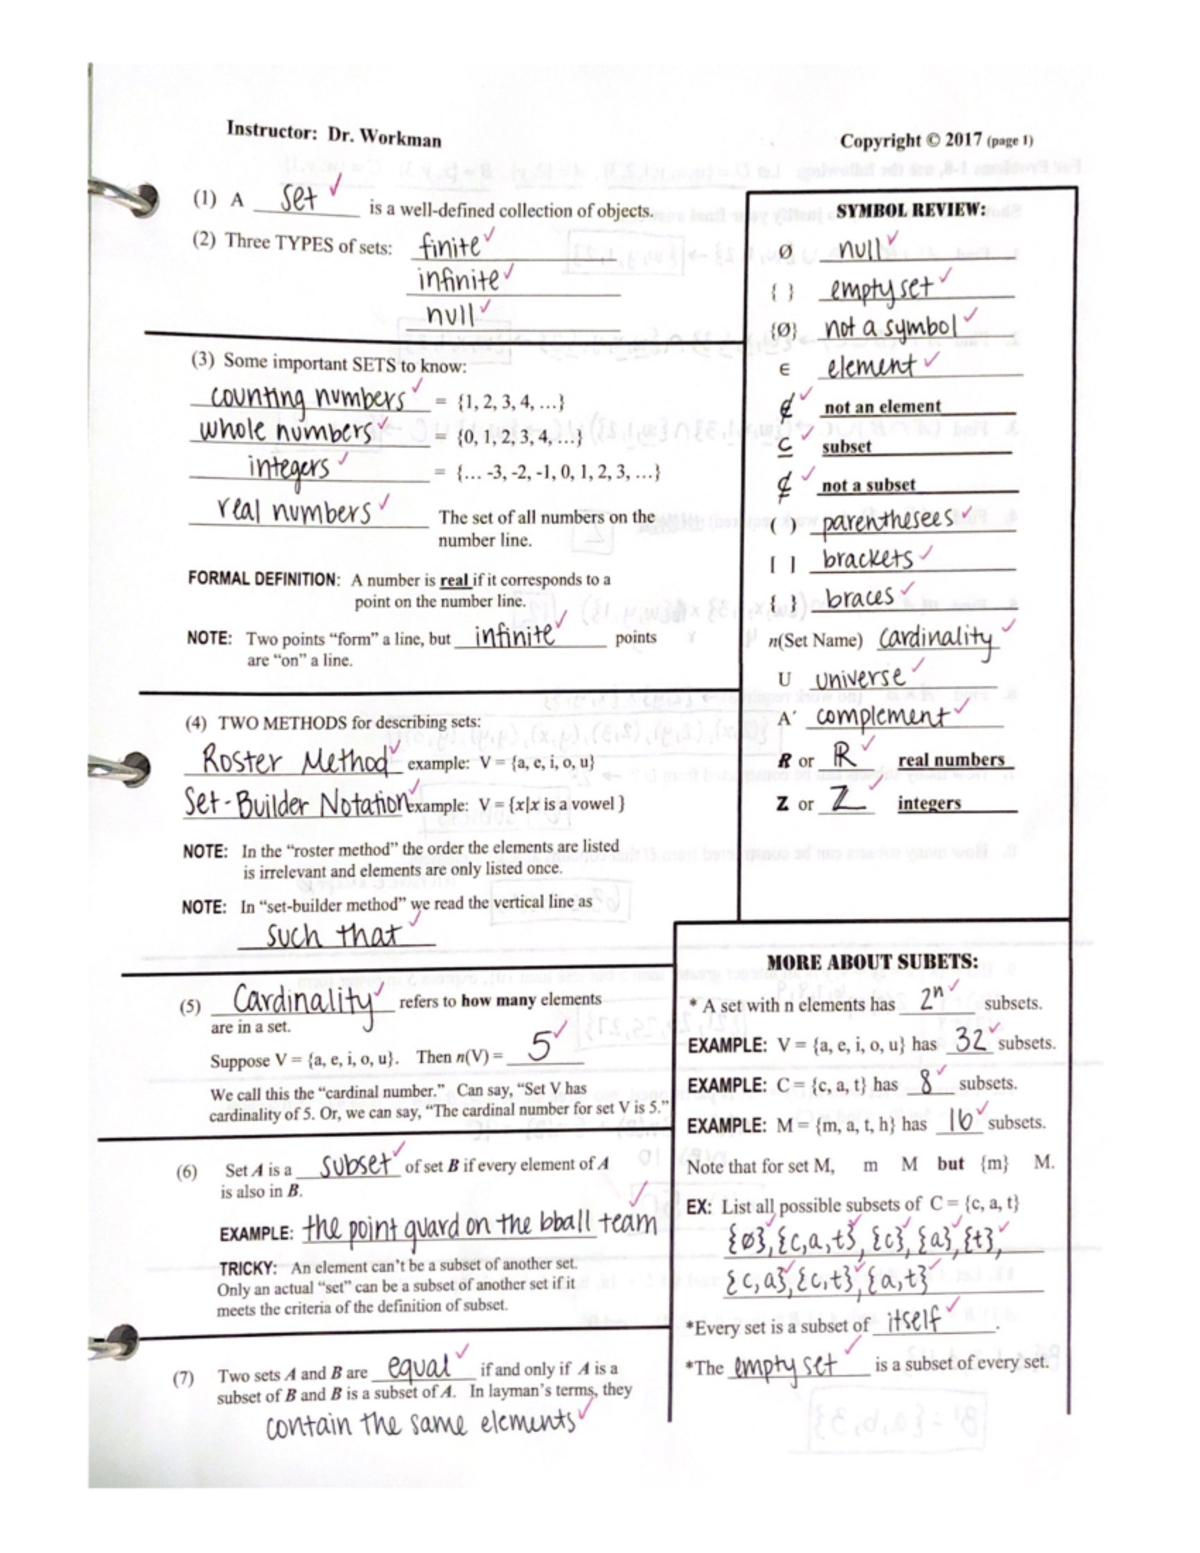 Instructor: Dr. Workman
Copyright © 2017 (page 1)
(1) A set is a well-defined collection of objects.
(2) Three TYPES of sets: finite
infinite
null
(3) Some important SETS to know:
counting numbers = {1, 2, 3, 4, …}
whole numbers = {0, 1, 2, 3, 4, …}
integers = {… -3, -2, -1, 0, 1, 2, 3, …}
real numbers The set of all numbers on the
number line.
FORMAL DEFINITION: A number is real if it corresponds to a
point on the number line.
NOTE: Two points “form” a line, but infinite points
are “on” a line.
(4) TWO METHODS for describing sets:
Roster Method example: V = {a, e, i, o, u}
Set-Builder Notation example: V = {x|x is a vowel }
NOTE: In the “roster method” the order the elements are listed
is irrelevant and elements are only listed once.
NOTE: In “set-builder method” we read the vertical line as
such that
(5) Cardinality refers to how many elements
are in a set.
Suppose V = {a, e, i, o, u}. Then n(V) = 5
We call this the “cardinal number.” Can say, “Set V has
cardinality of 5. Or, we can say, “The cardinal number for set V is 5.”
(6) Set A is a subset of set B if every element of A
is also in B.
EXAMPLE: the point guard on the bball team
TRICKY: An element can't be a subset of another set.
Only an actual “set” can be a subset of another set if it
meets the criteria of the definition of subset.
(7) Two sets A and B are equal if and only if A is a
subset of B and B is a subset of A. In layman's terms, they
contain the same elements
SYMBOL REVIEW:
Ø null
{ } empty set
{Ø} not a symbol
∈ element
∉ not an element
⊆ subset
⊄ not a subset
( ) parenthesees
[ ] brackets
{ } braces
n(Set Name) cardinality
U universe
A´ complement
R or ℝ real numbers
Z or ℤ integers
MORE ABOUT SUBETS:
* A set with n elements has 2ⁿ subsets.
EXAMPLE: V = {a, e, i, o, u} has 32 subsets.
EXAMPLE: C = {c, a, t} has 8 subsets.
EXAMPLE: M = {m, a, t, h} has 16 subsets.
Note that for set M, m M but {m} M.
EX: List all possible subsets of C = {c, a, t}
{Ø}, {c, a, t}, {c}, {a}, {t},
{c, a}, {c, t}, {a, t}
*Every set is a subset of itself.
*The empty set is a subset of every set.